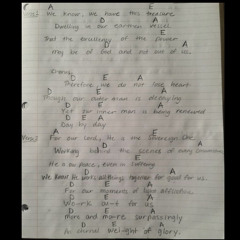 A E
We know we have this treasure
D A
Dwelling in our earthen vessel
E
That the excellency of the power
D A
may be of God and not of us.
Chorus
D E A
Therefore, we do not lose heart
D E A
Though our outer man is decaying
D E A
Yet our inner man is being renewed
D E A
Day by day
A E
For our Lord, He is the Sovereign One
D A
Working behind the scenes of many
E
He is our peace, even in suffering
D A
We know He works all things together for good for us.
D E A
For our moments of light affliction
D E A
Work out for us
D E A
More and more surpassingly
D E A
An eternal weight of glory.